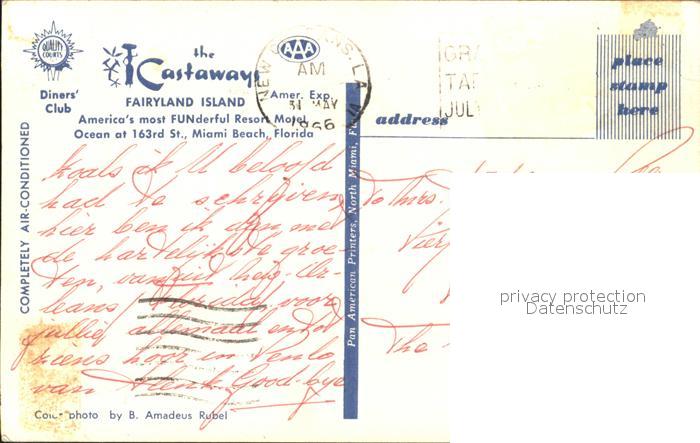 QUALITY COURTS
the
Castaways
Diners' Club
AAA
Amer. Exp.
FAIRYLAND ISLAND
America's most FUNderful Resort Motel
Ocean at 163rd St., Miami Beach, Florida
COMPLETELY AIR-CONDITIONED
NEW LA
AM
31 MAY
1966
GRA
TA
JULY
address
place
stamp
here
Zoals ik U beloofd
had te schrijven,
hier ben ik dan, met
de hartelijkste groe-
ten, vanuit New-Or-
leans Florida, voor
jullie allemaal en tot
ziens hoor in Venlo
van Henk. Good-bye
To Mrs.
The
Pan American Printers, North Miami, Fl
Color photo by B. Amadeus Rubel
privacy protection
Datenschutz